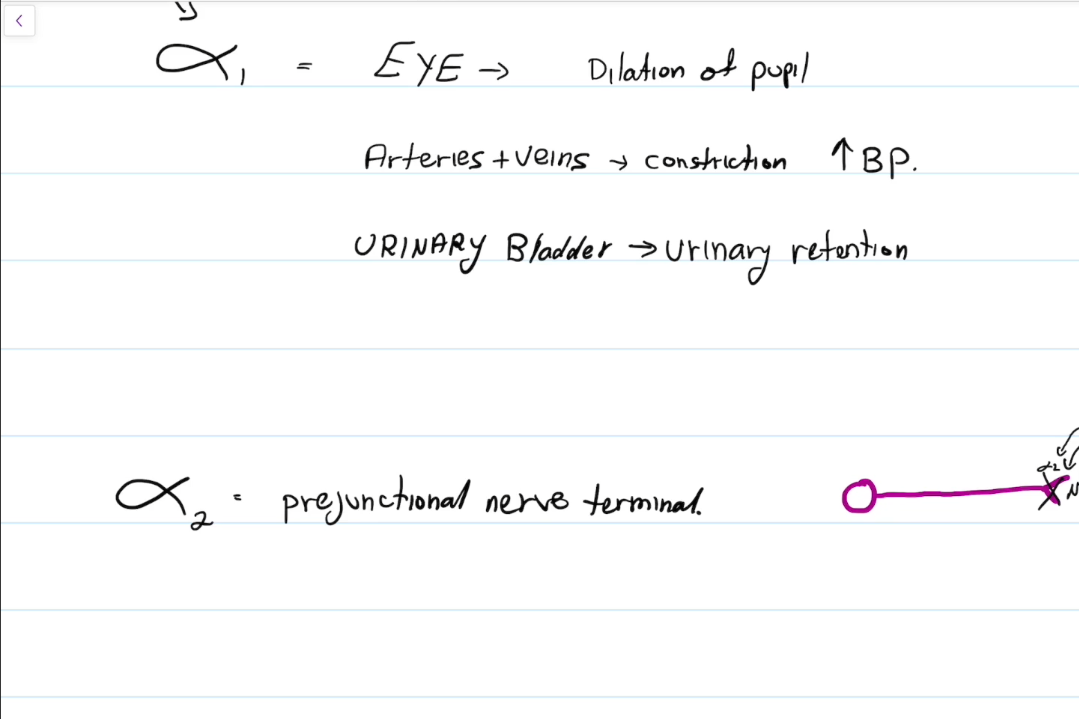 y
α₁ = EYE → Dilation of pupil
Arteries + veins → constriction ↑ BP.
URINARY Bladder → Urinary retention
α₂
α₂ = prejunctional nerve terminal.